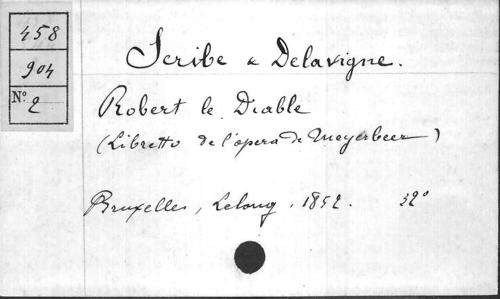 458
904
No. 2
Scribe & Delavigne.
Robert le Diable
(Libretto de l'opera de Meyerbeer)
Bruxelles, Lelong, 1852. 32°